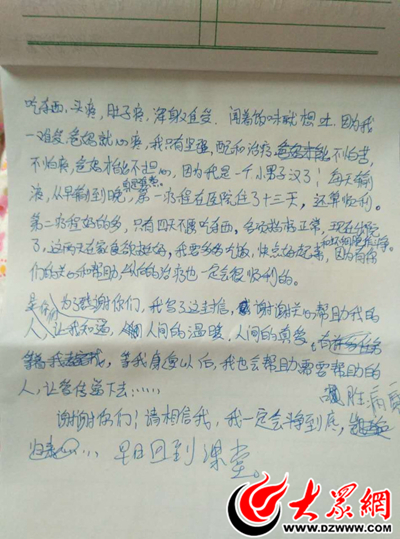 吃东西,头疼,肚子疼,浑身难受,闻着饭味就想吐,因为我
一难受爸妈就心疼,我只有坚强,配和治疗,爸妈才能不怕苦,
不怕疼,爸妈才能不担心,因为我是一个小男子汉了!每天输
液,从早输到晚,第一疗程在医院住了十三天,还算顺利。
第二疗程好的多,只有四天不愿吃东西,各项指标正常,现在出院
了,这两天在家食欲挺好,我要多多吃饭,快点好起来,因为有你
们的关心和帮助,以后的治疗也一定会很顺利的。
为了感谢你们,我写了这封信,谢谢关心帮助我的
人,让我知道,人间的温暖,人间的真爱,
等我康复以后,我也会帮助需要帮助的
人,让爱传递下去……
战胜病魔
谢谢你们!请相信我,我一定会坚持到底,
早日回到课堂。
大众网
WWW.DZWWW.COM